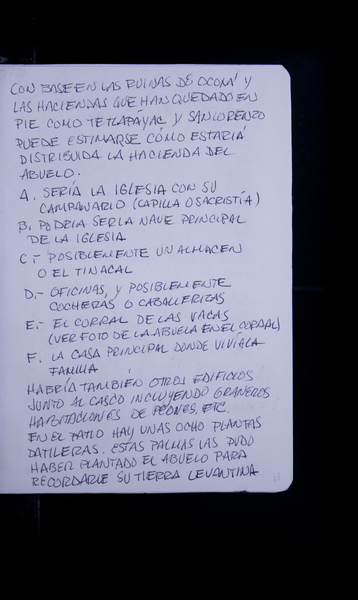 CON BASE EN LAS RUINAS DE OCONÁ Y
LAS HACIENDAS QUE HAN QUEDADO EN
PIE COMO TETLAPÁYAC Y SAN LORENZO
PUEDE ESTIMARSE CÓMO ESTARÍA
DISTRIBUIDA LA HACIENDA DEL
ABUELO.
A. SERÍA LA IGLESIA CON SU
CAMPANARIO (CAPILLA O SACRISTÍA)
B. PODRIA SER LA NAVE PRINCIPAL
DE LA IGLESIA
C.- POSIBLEMENTE UN ALMACEN
O EL TINACAL
D.- OFICINAS, Y POSIBLEMENTE
COCHERAS O CABALLERIZAS
E.- EL CORRAL DE LAS VACAS
(VER FOTO DE LA ABUELA EN EL CORRAL)
F. LA CASA PRINCIPAL DONDE VIVÍA LA
FAMILIA
HABRÍA TAMBIÉN OTROS EDIFICIOS
JUNTO AL CASCO INCLUYENDO GRANEROS
HABITACIONES DE PEONES, ETC.
EN EL PATIO HAY UNAS OCHO PLANTAS
DATILERAS. ESTAS PALMAS LAS PUDO
HABER PLANTADO EL ABUELO PARA
RECORDARLE SU TIERRA LEVANTINA